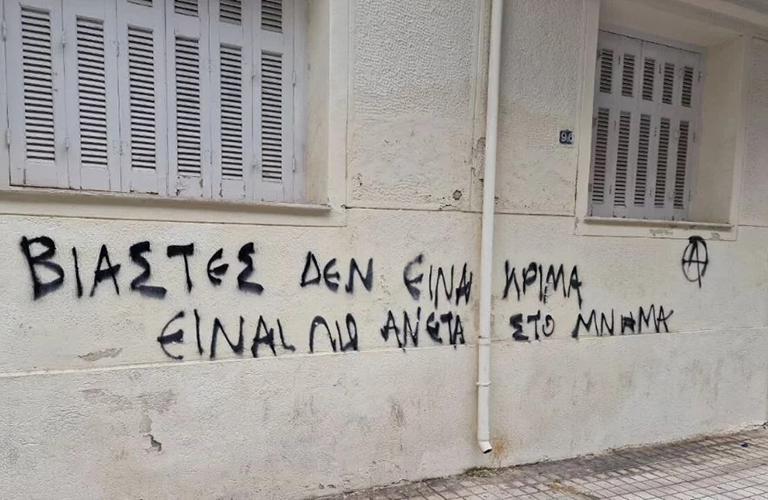 96
ΒΙΑΣΤΕΣ ΔΕΝ ΕΙΝΑΙ ΚΡΙΜΑ
ΕΙΝΑΙ ΠΙΟ ΑΝΕΤΑ ΣΤΟ ΜΝΗΜΑ